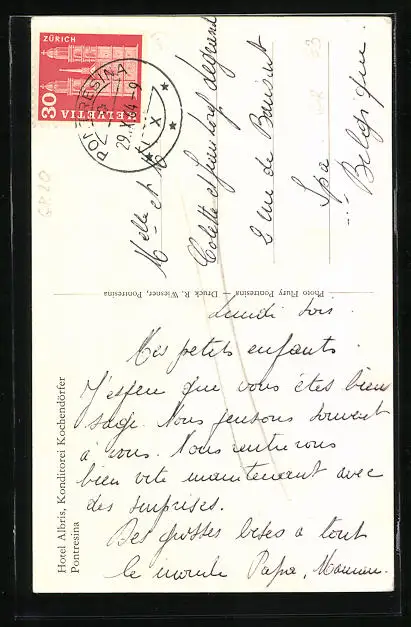 ZÜRICH
HELVETIA
30
PONTRESINA
29.X.
-9
Melle et Mr
Colette et
2 rue de
Spa
Belgique
Photo Flury Pontresina — Druck R. Wiesner, Pontresina
Hotel Albris, Konditorei Kochendörfer
Pontresina
Lundi soir.
Mes petits enfants.
J'espère que vous êtes bien
sage. Nous pensons souvent
à vous. Nous rentrerons
bien vite maintenant avec
des surprises.
Des grosses bises à tout
le monde Papa, Maman.